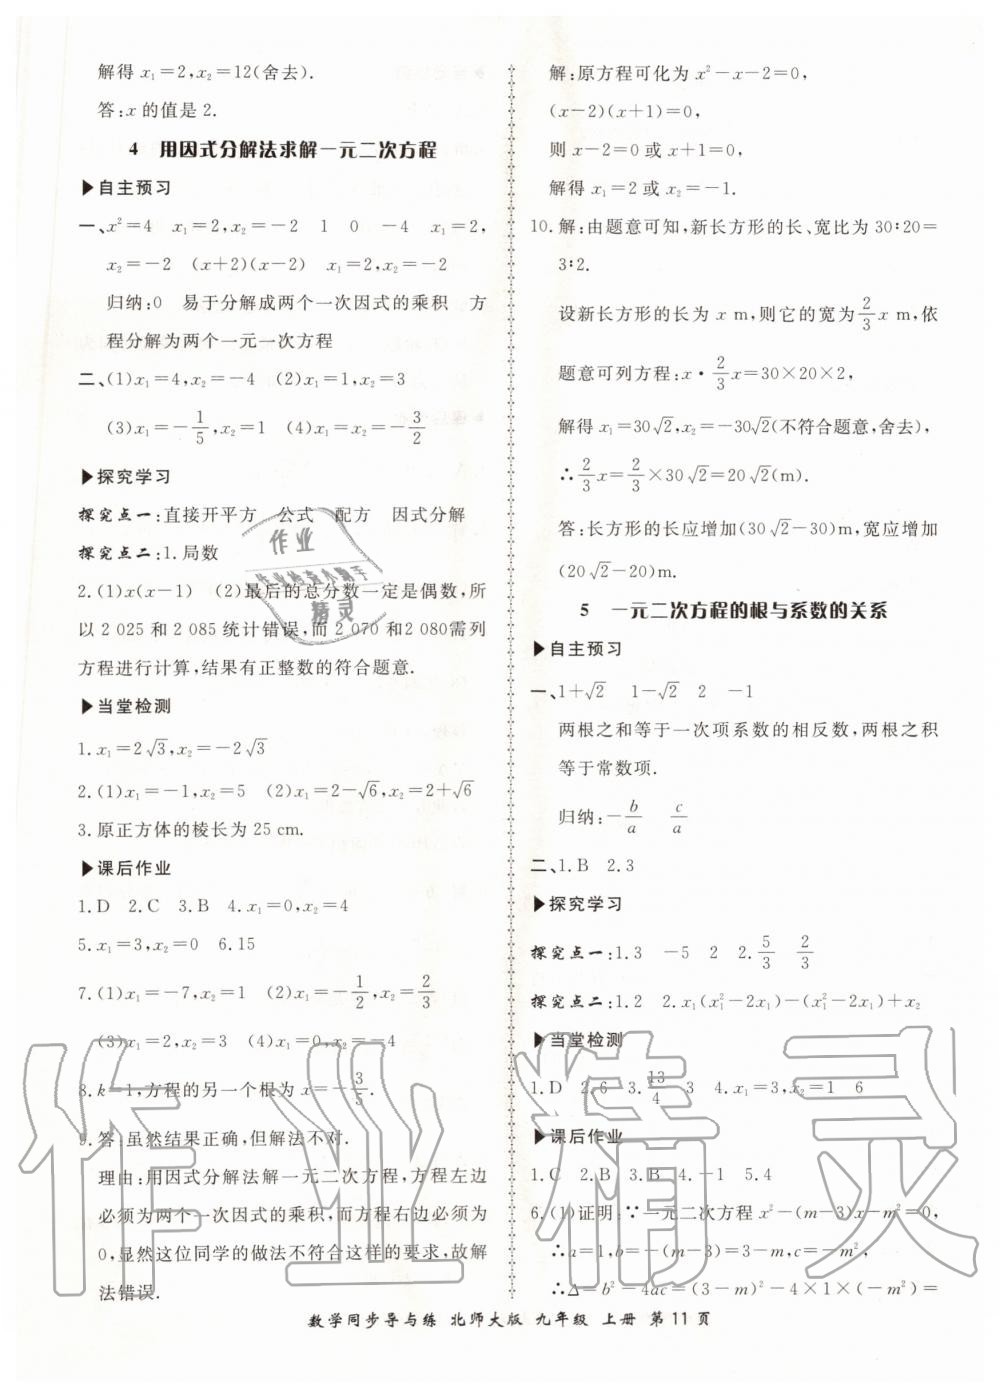 解得 x₁=2,x₂=12(舍去).
答:x 的值是 2.
4 用因式分解法求解一元二次方程
▶自主预习
一、x²=4 x₁=2,x₂=-2 1 0 -4 x₁=2,
x₂=-2 (x+2)(x-2) x₁=2,x₂=-2
归纳:0 易于分解成两个一次因式的乘积 方
程分解为两个一元一次方程
二、(1)x₁=4,x₂=-4 (2)x₁=1,x₂=3
(3)x₁=-1/5,x₂=1 (4)x₁=-3/2
▶探究学习
探究点一:直接开平方 公式 配方 因式分解
探究点二:1.局数
2.(1)x(x-1) (2)最后的总分数一定是偶数,所
以 2 025 和 2 085 统计错误,而 2 070 和2 080需列
方程进行计算,结果有正整数的符合题意.
▶当堂检测
1.x₁=2√3,x₂=-2√3
2.(1)x₁=-1,x₂=5 (2)x₁=2-√6,x₂=2+√6
3.原正方体的棱长为 25 cm.
▶课后作业
1.D 2.C 3.B 4.x₁=0,x₂=4
5.x₁=3,x₂=0 6.15
7.(1)x₁=-7,x₂=1 (2)x₁=-1/2,x₂=2/3
(3)x₁=2,x₂=3 (4)x₁=0,x₂=-4
8.k=1,方程的另一个根为 x=-3/5.
9.答:虽然结果正确,但解法不对.
理由:用因式分解法解一元二次方程,方程左边
必须为两个一次因式的乘积,而方程右边必须为
0,显然这位同学的做法不符合这样的要求,故解
法错误.
解:原方程可化为 x²-x-2=0,
(x-2)(x+1)=0,
则 x-2=0 或 x+1=0,
解得 x₁=2 或 x₂=-1.
10.解:由题意可知,新长方形的长、宽比为 30∶20=
3∶2.
设新长方形的长为 x m,则它的宽为 2/3 x m,依
题意可列方程:x·2/3 x=30×20×2,
解得 x₁=30√2,x₂=-30√2(不符合题意,舍去),
∴2/3 x=2/3×30√2=20√2(m).
答:长方形的长应增加(30√2-30)m,宽应增加
(20√2-20)m.
5 一元二次方程的根与系数的关系
▶自主预习
一、1+√2 1-√2 2 -1
两根之和等于一次项系数的相反数,两根之积
等于常数项.
归纳:-b/a c/a
二、1.B 2.3
▶探究学习
探究点一:1.3 -5 2 2.5/3 2/3
探究点二:1.2 2.x₁(x₁²-2x₁)-(x₁²-2x₁)+x₂
▶当堂检测
1.D 2.6 3.13/4 3 4.x₁=3,x₂=1 6
▶课后作业
1.A 2.B 3.B 4.-1 5.4
6.(1)证明:∵一元二次方程 x²-(m-3)x-m²=0,
∴a=1,b=-(m-3)=3-m,c=-m²,
∴Δ=b²-4ac=(3-m)²-4×1×(-m²)=
数学同步导与练 北师大版 九年级 上册 第 11 页
作业
作业检查小助手
精灵
作业精灵